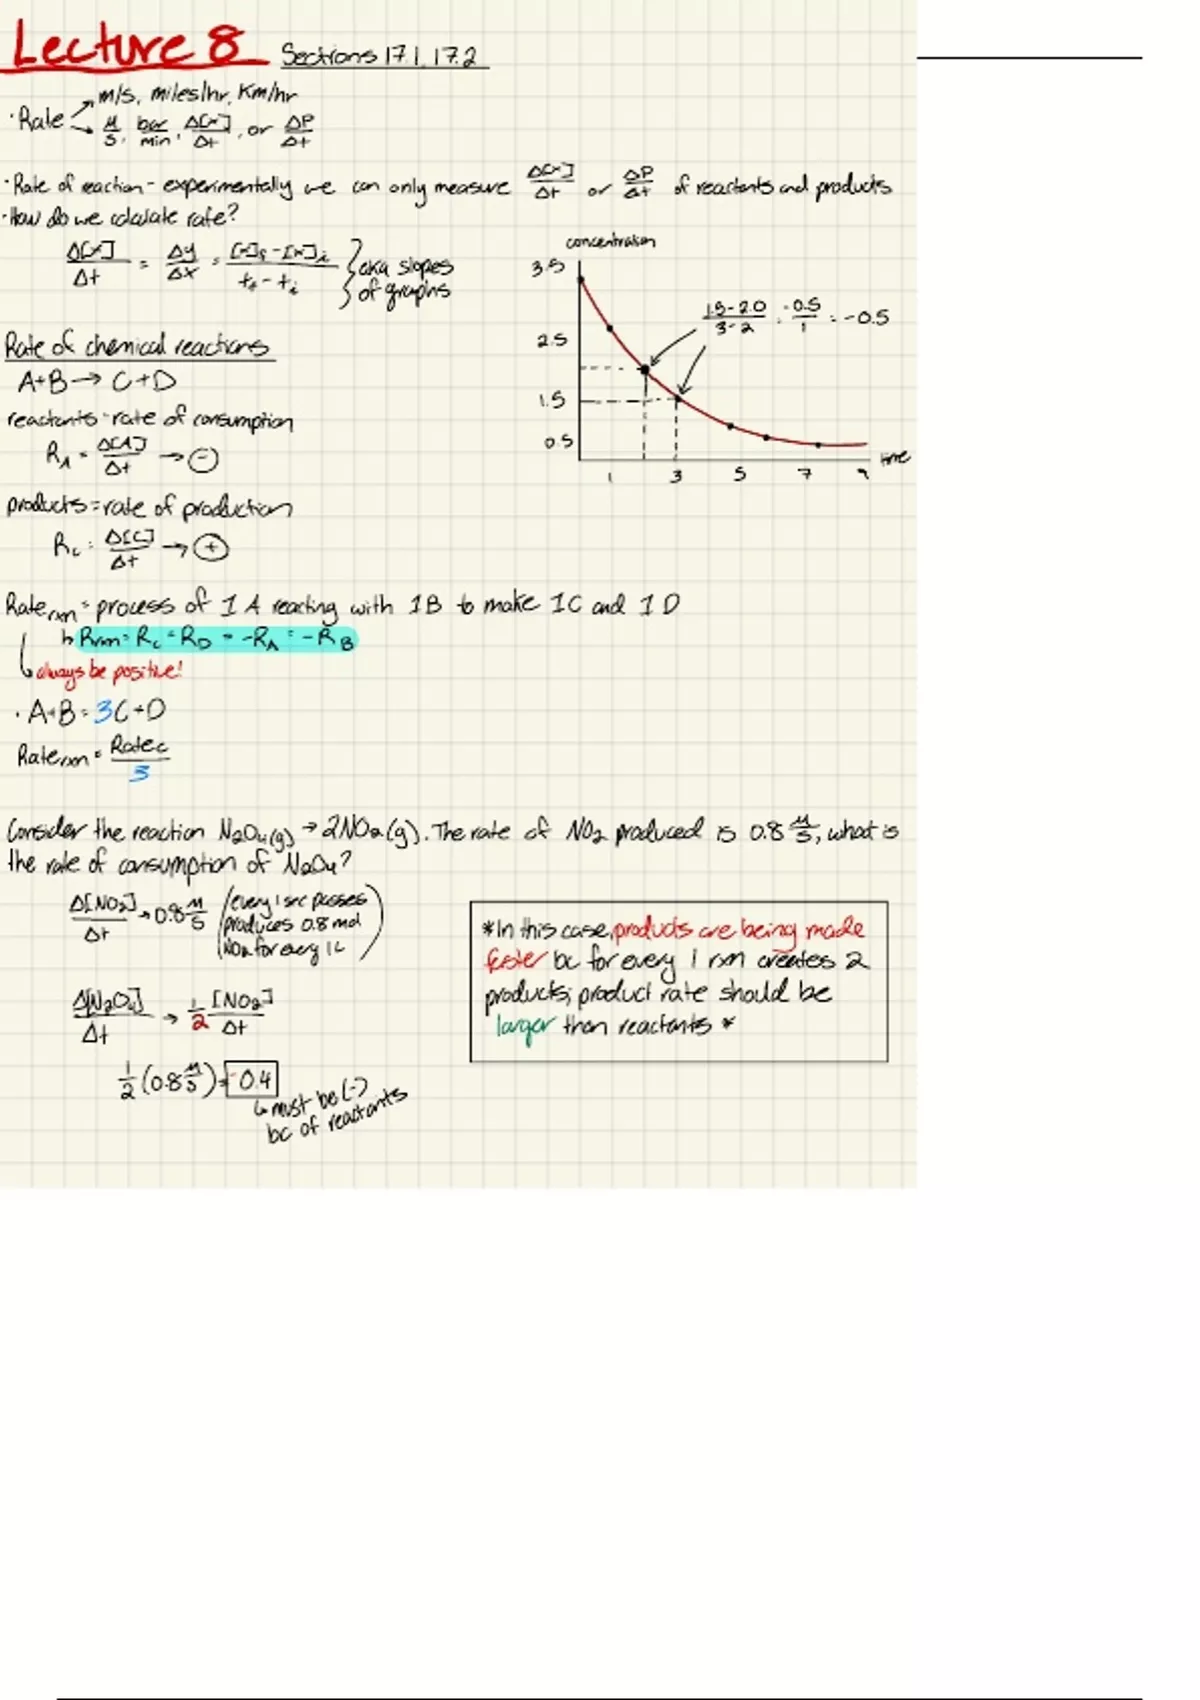 Lecture 8 Sections 17.1, 17.2
m/s, miles/hr, Km/hr
· Rate
M/s, bar/min, Δ[x]/Δt, or ΔP/Δt
· Rate of reaction - experimentally we can only measure Δ[x]/Δt or ΔP/Δt of reactants and products
· How do we calculate rate?
Δ[x]/Δt = Δy/Δx = [x]f - [x]i / tf - ti } aka slopes of graphs
concentration
3.5
2.5
1.5
0.5
1 3 5 7 9 time
1.5-2.0/3-2 = -0.5/1 = -0.5
Rate of chemical reactions
A+B → C+D
reactants - rate of consumption
R_A = Δ[A]/Δt → (-)
products = rate of production
R_C = Δ[C]/Δt → (+)
Rate rxn = process of 1 A reacting with 1B to make 1C and 1D
↳ Rrxn = R_C = R_D = -R_A = -R_B
↳ always be positive!
· A+B = 3C+D
Rate rxn = Rate C / 3
Consider the reaction N2O4(g) → 2NO2(g). The rate of NO2 produced is 0.8 M/s, what is
the rate of consumption of N2O4?
Δ[NO2]/Δt → 0.8 M/s (every 1 sec passes
produces 0.8 mol
NO2 for every 1L)
Δ[N2O4]/Δt → 1/2 [NO2]/Δt
1/2 (0.8 M/s) = -0.4
↳ must be (-)
bc of reactants
*In this case, products are being made
faster bc for every 1 rxn creates 2
products; product rate should be
larger than reactants *